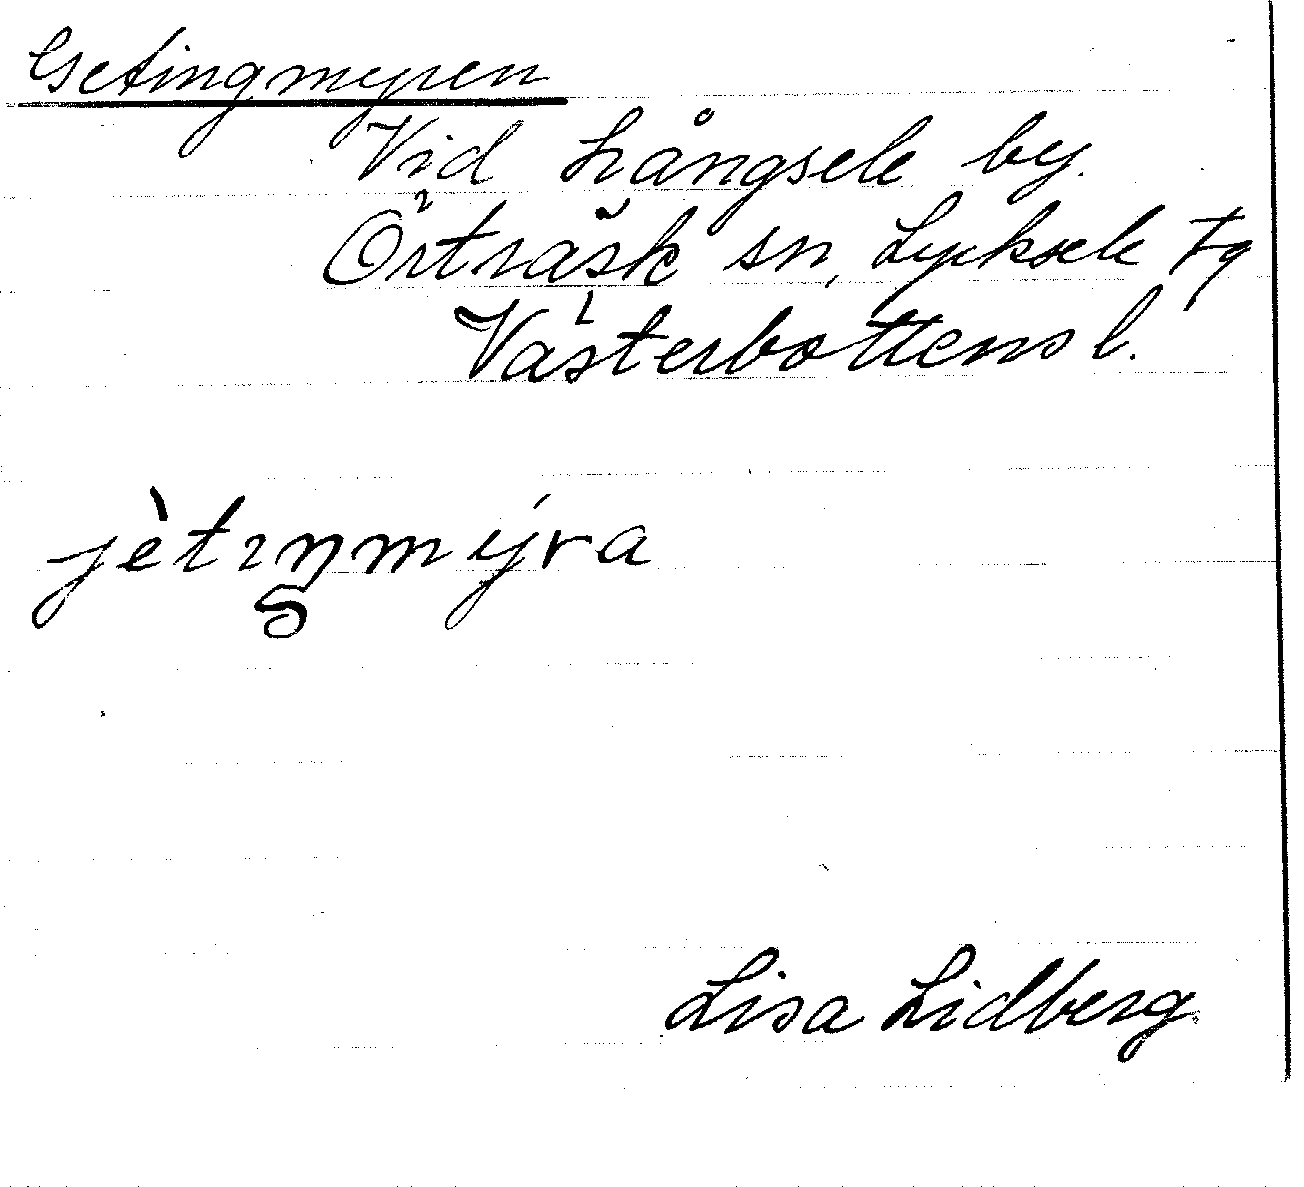 Getingmyren
Vid Långsele by.
Örträsk sn, Lycksele tg
Västerbottens l.
jètıŋmýra
Lisa Lidberg.